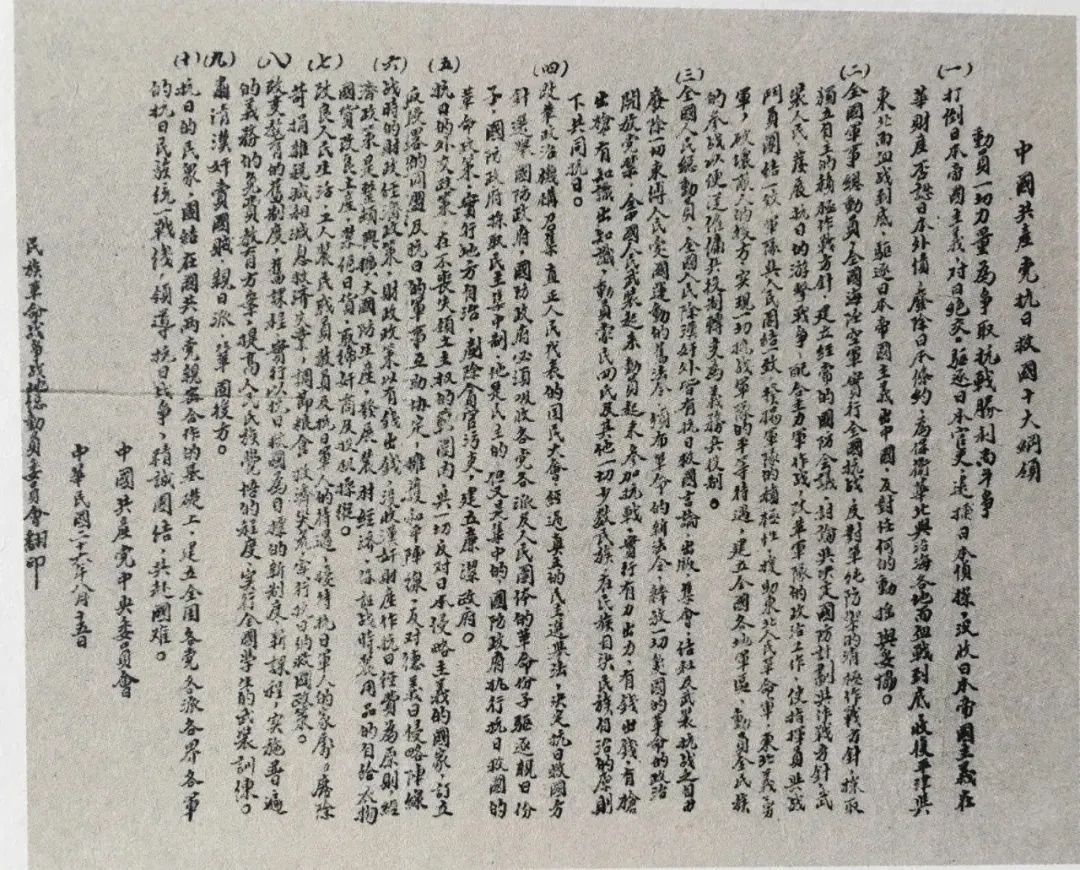 中國共產党抗日救國十大綱領
動員一切力量為爭取抗戰勝利而斗爭
(一)打倒日本帝國主義,对日絕交。驅逐日本官吏,逮捕日本偵探,沒收日本帝國主義在
華財產,否認日本外債,廢除日本條約,為保衛華北與沿海各地而血戰到底,收復平津與
東北而血戰到底,驅逐日本帝國主義出中國,反對任何的動搖與妥協。
(二)全國軍事總動員,全國海陸空軍實行全國抗战,反對單純防禦的消極作戰方針,採取
獨立自主的積極作戰方針,建立經常的國防会議,討論與決定國防計劃與作戰方針,武
裝人民,發展抗日的游擊戰爭,配合主力軍作战,改革軍隊的政治工作,使指揮員與战
鬥員團結一致,軍隊與人民團結一致,發揚軍隊的積極性,援助東北人民革命軍,東北義勇
軍,破壞敵人的後方,实現一切抗战軍隊的平等待遇,建立全國各地軍區,動員全民族
的參战,以便逐漸備兵役制轉变為義務兵役制。
(三)全國人民總動員,全國人民除漢奸外皆有抗日救國言論、出版、集會、結社及武裝抗战之自力
廢除一切束縛人民愛國運動的舊法令,頒布革命的新法令,釋放一切愛國的革命的政治
開放党禁,全國人民武裝起來,動員起來,參加抗戰,實行有力出力,有錢出錢,有槍
出槍,有知識出知識,動員蒙民回民及其他一切少数民族,在民族自決民族自治的原則
下共同抗日。
(四)改革政治機構,召集真正人民代表的國民大會,經過真正的民主選舉法,決定抗日救國方
針,選舉國防政府,國防政府必須吸收各党各派及人民團体的革命份子,驅逐親日份
子,國防政府採取民主集中制,他是民主的,但又是集中的,國防政府执行抗日救國的
革命政策,實行地方自治,剷除貪官污吏,建立廉潔政府。
(五)抗日的外交政策,在不喪失領土主权的範圍內,與一切反对日本侵略主義的國家,訂立
反侵略的同盟及抗日的軍事互助協定,擁護和平陣線,反对德義日侵略陣線
(六)战時的財政经濟政策,財政政策以有钱出钱,沒收漢奸財產作抗日经費為原則,經
濟政策是整頓與擴大國防生產,發展農村經濟,保証战時農用品的自給,衣物
國貨,改良土產,禁絕日貨,取締奸商及投机操縱。
(七)改良人民生活,工人農民职員教員及抗日軍人的待遇,優待抗日軍人的家屬,廢除
苛捐雜稅,減租減息,救濟失業,調節粮食,救济灾荒,實行抗日的救國政策。
(八)改變教育的舊制度,舊課程,實行以抗日救國為目標的新制度,新課程,实施普遍
的義務的免費教育方案,提高人民民族覺悟的程度,实行全國學生的武裝訓練。
(九)肅清漢奸,賣國賊,親日派,鞏固後方。
(十)抗日的民眾,團結在國共两党親密合作的基礎上,建立全國各党各派各界各軍
的抗日民族統一戰线,領導抗日战爭,精誠團結,共赴國难。
中國共產党中央委員會
中華民國二十六年八月十五日
民族革命战爭战地總動員委員會翻印